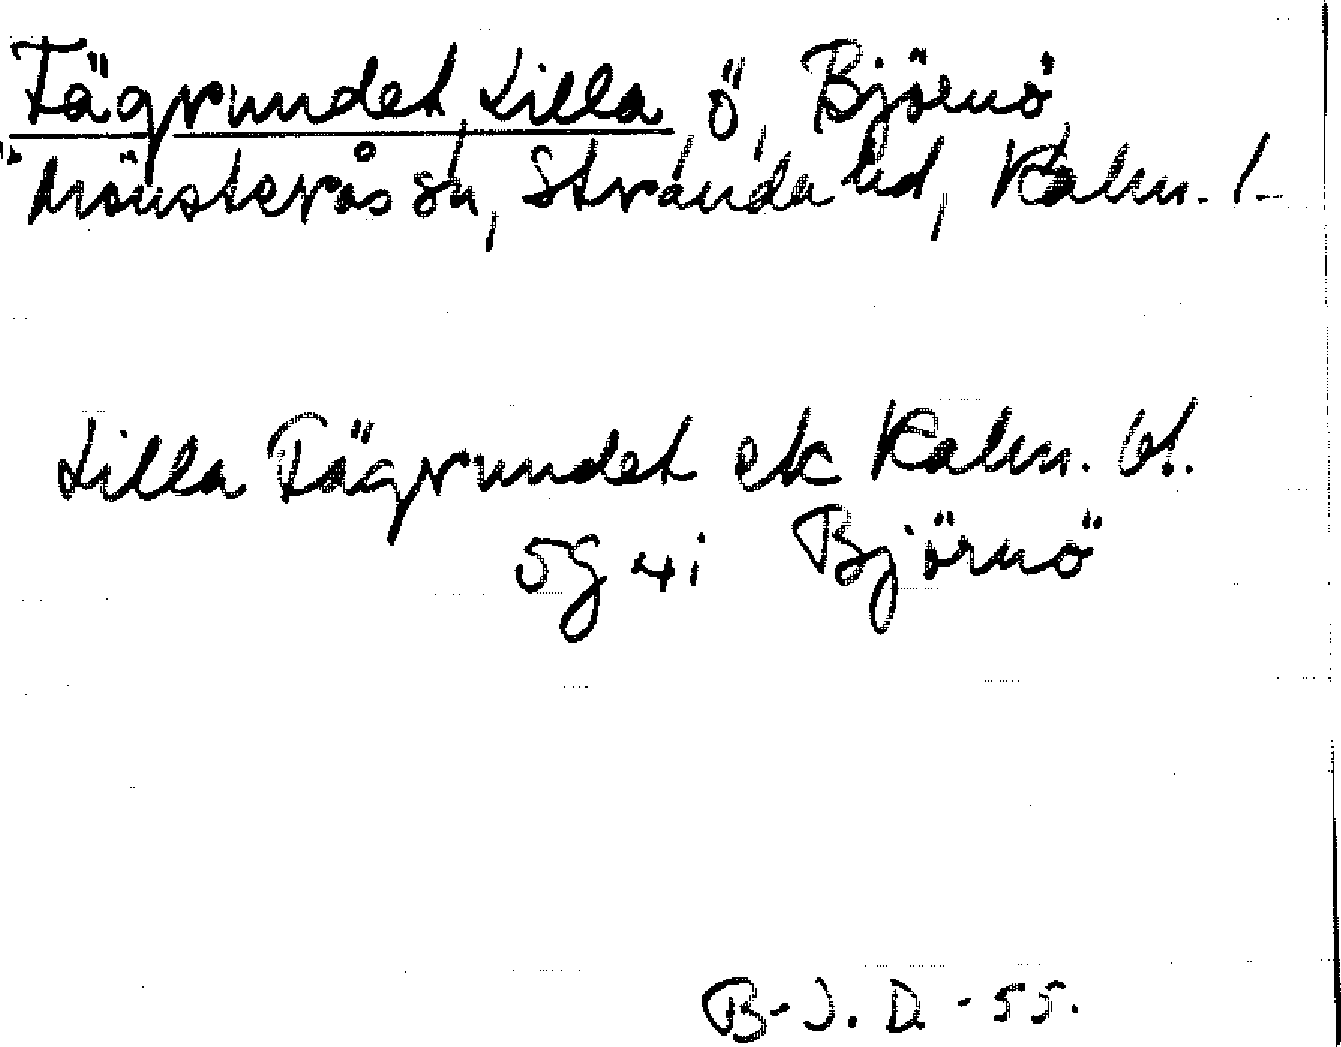 Tägrundet, Lilla, ö, Björnö
Mönsterås sn, Stranda hd, Kalm. l.
Lilla Tägrundet ek Kalm. öt.
5g 4i Björnö
B-J. D. -55.